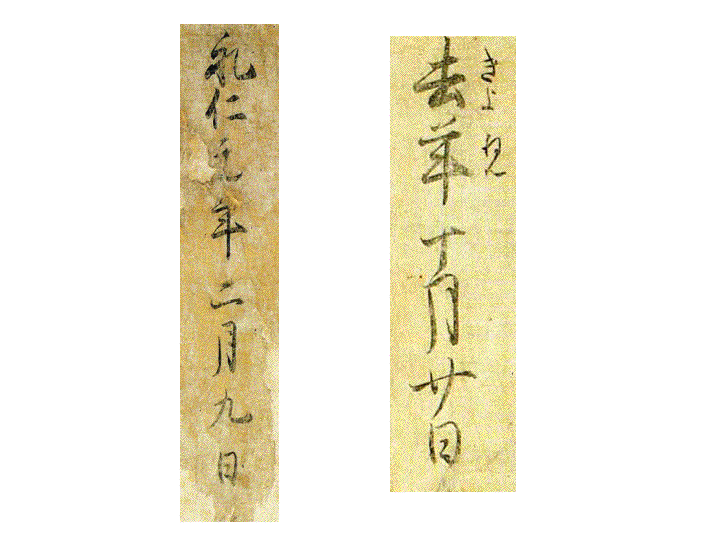 去年十月廿日
きよねん
仁元年二月九日